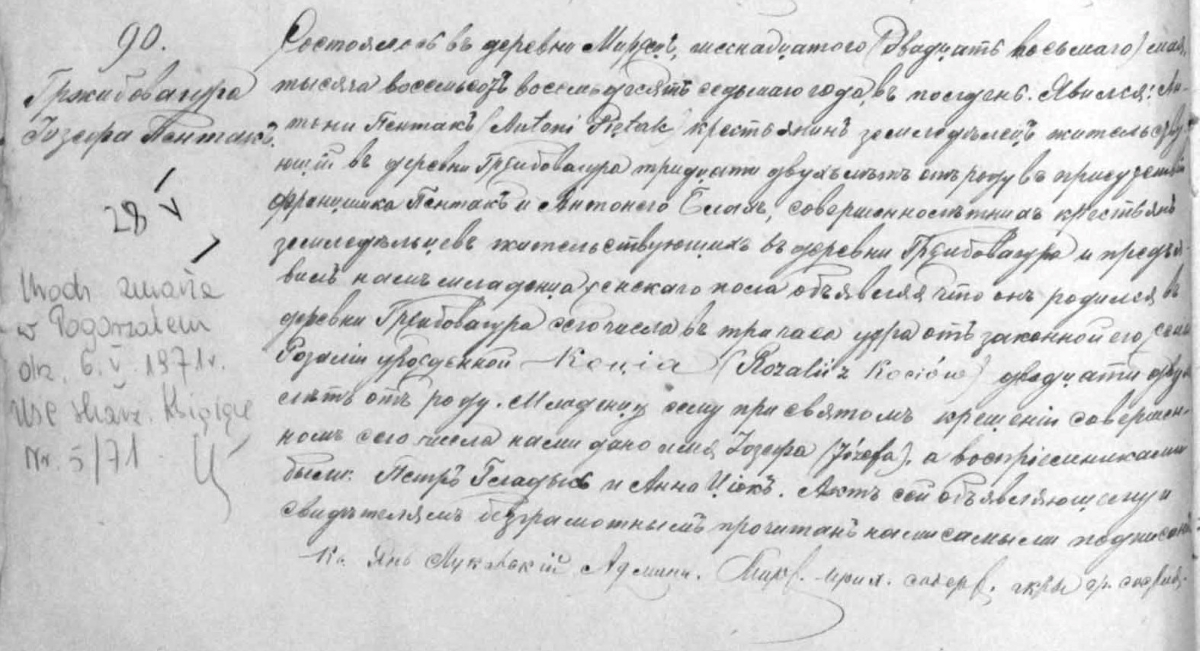 90.
Гржибовагура
Іозефа Пентакъ.
28
Urodz. zmarła
w Pogorzałem
dn. 6.V.1971r.
USC Skarż. Książęce
Nr. 5/71
Состоялось въ деревни Мирецъ, шеснадцатого (Двадцать восьмаго) мая,
тысяча восемьсотъ восемьдесятъ седьмаго года, въ полдень. Явился: Ан-
тони Пентакъ (Antoni Piętak) крестьянинъ земледѣлецъ жительству-
ющій въ деревни Гржибовагура тридцати двухъ лѣтъ отъ роду въ присудствіи
Францишка Пентакъ и Антонего совершеннолѣтнихъ крестьянъ
земледѣльцевъ жительствующихъ въ деревни Гржибовагура и предъя-
вилъ намъ младенца женскаго пола объявляя что онъ родился въ
деревни Гржибовагура сего числа въ три часа утра отъ законной его жены
Розаліи урожденной Коція (Rozalii z Kociów) двадцати
лѣтъ отъ роду. Младенцу сему при святомъ крещеніи совершен-
номъ сего числа нами дано имя Іозефа (Józefa), а воспріемниками
были: Петръ Гладысь и Анна Ціокъ. Актъ сей объявляющему и
свидѣтелямъ безграмотнымъ прочитанъ нами самыми подписанъ
Кс. Янъ Админ. прих. содерж.